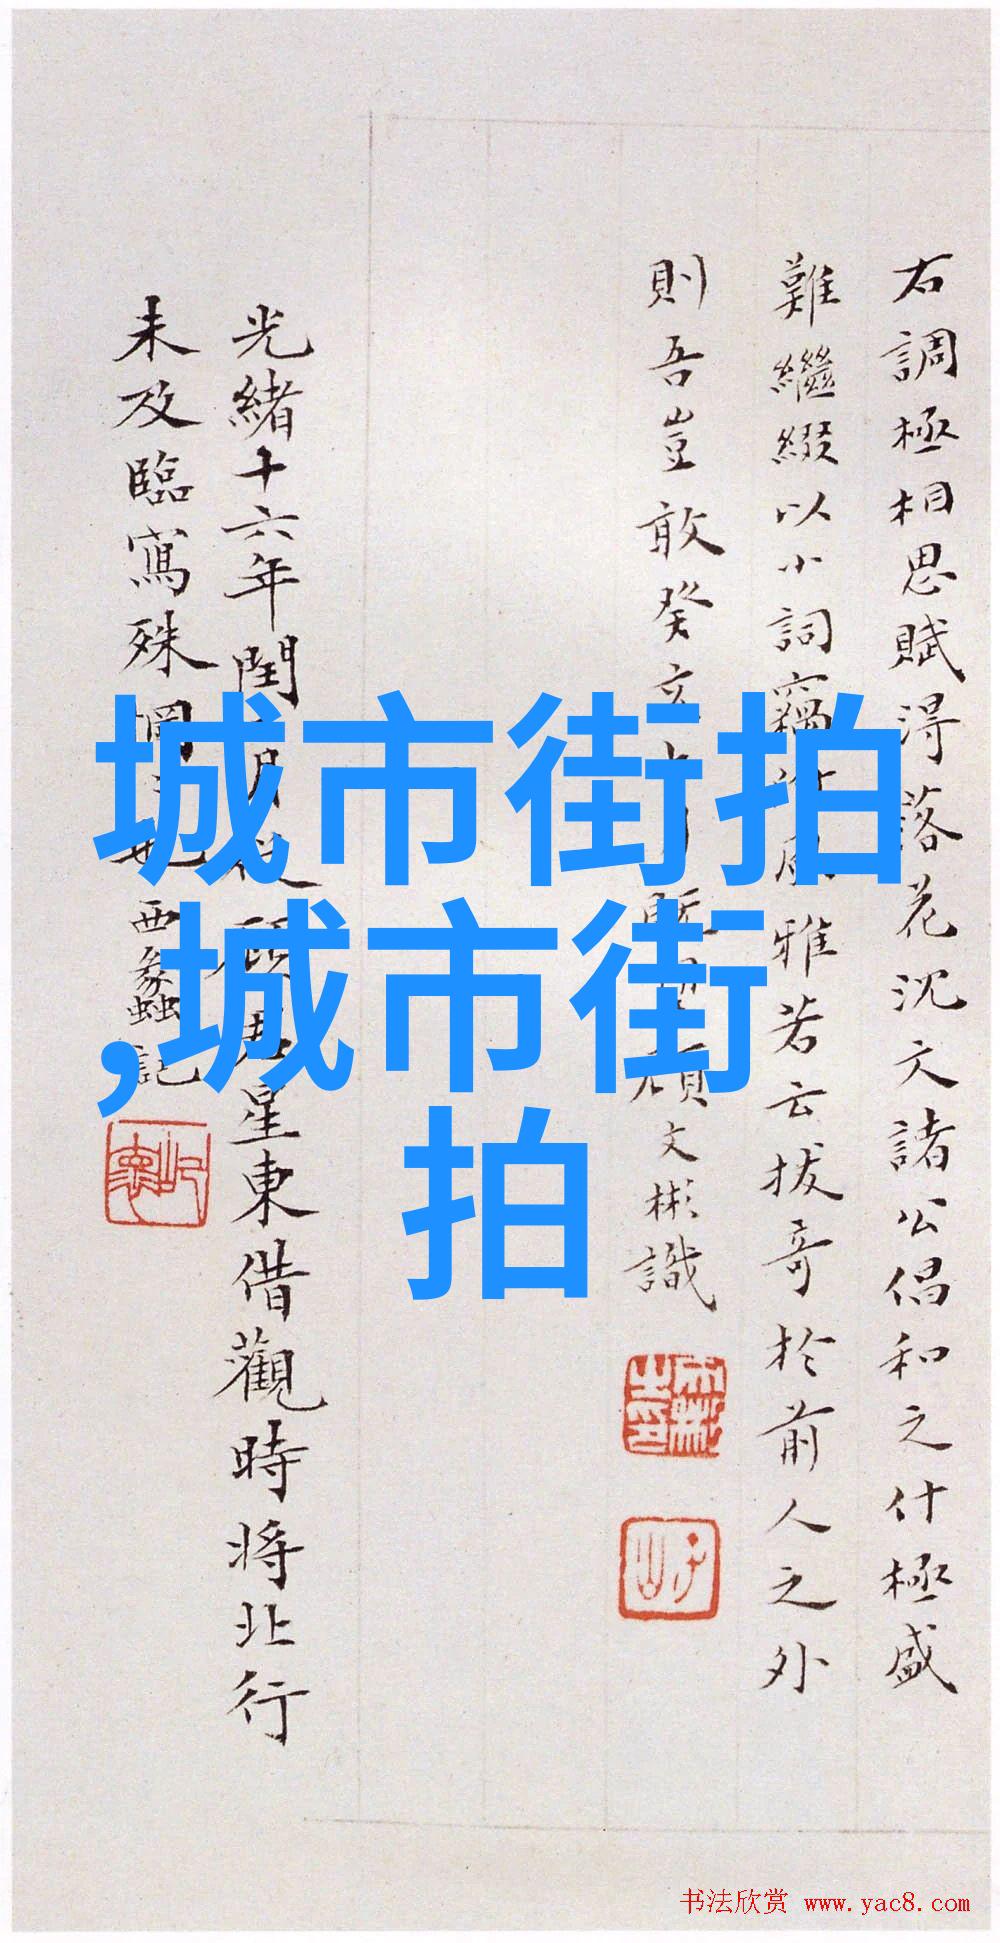 右調極相思賦得落花沈文諸公倡和之什極盛
難繼綴以小詞竊附風雅若云拔奇於前人之外
則吾豈敢癸亥 顧文彬識
光緒十六年閏 月從顧君星東借觀時將北行
未及臨寫殊惘 也西蠡記
城市街拍
,城市街
拍
书法欣赏 www.yac8.com